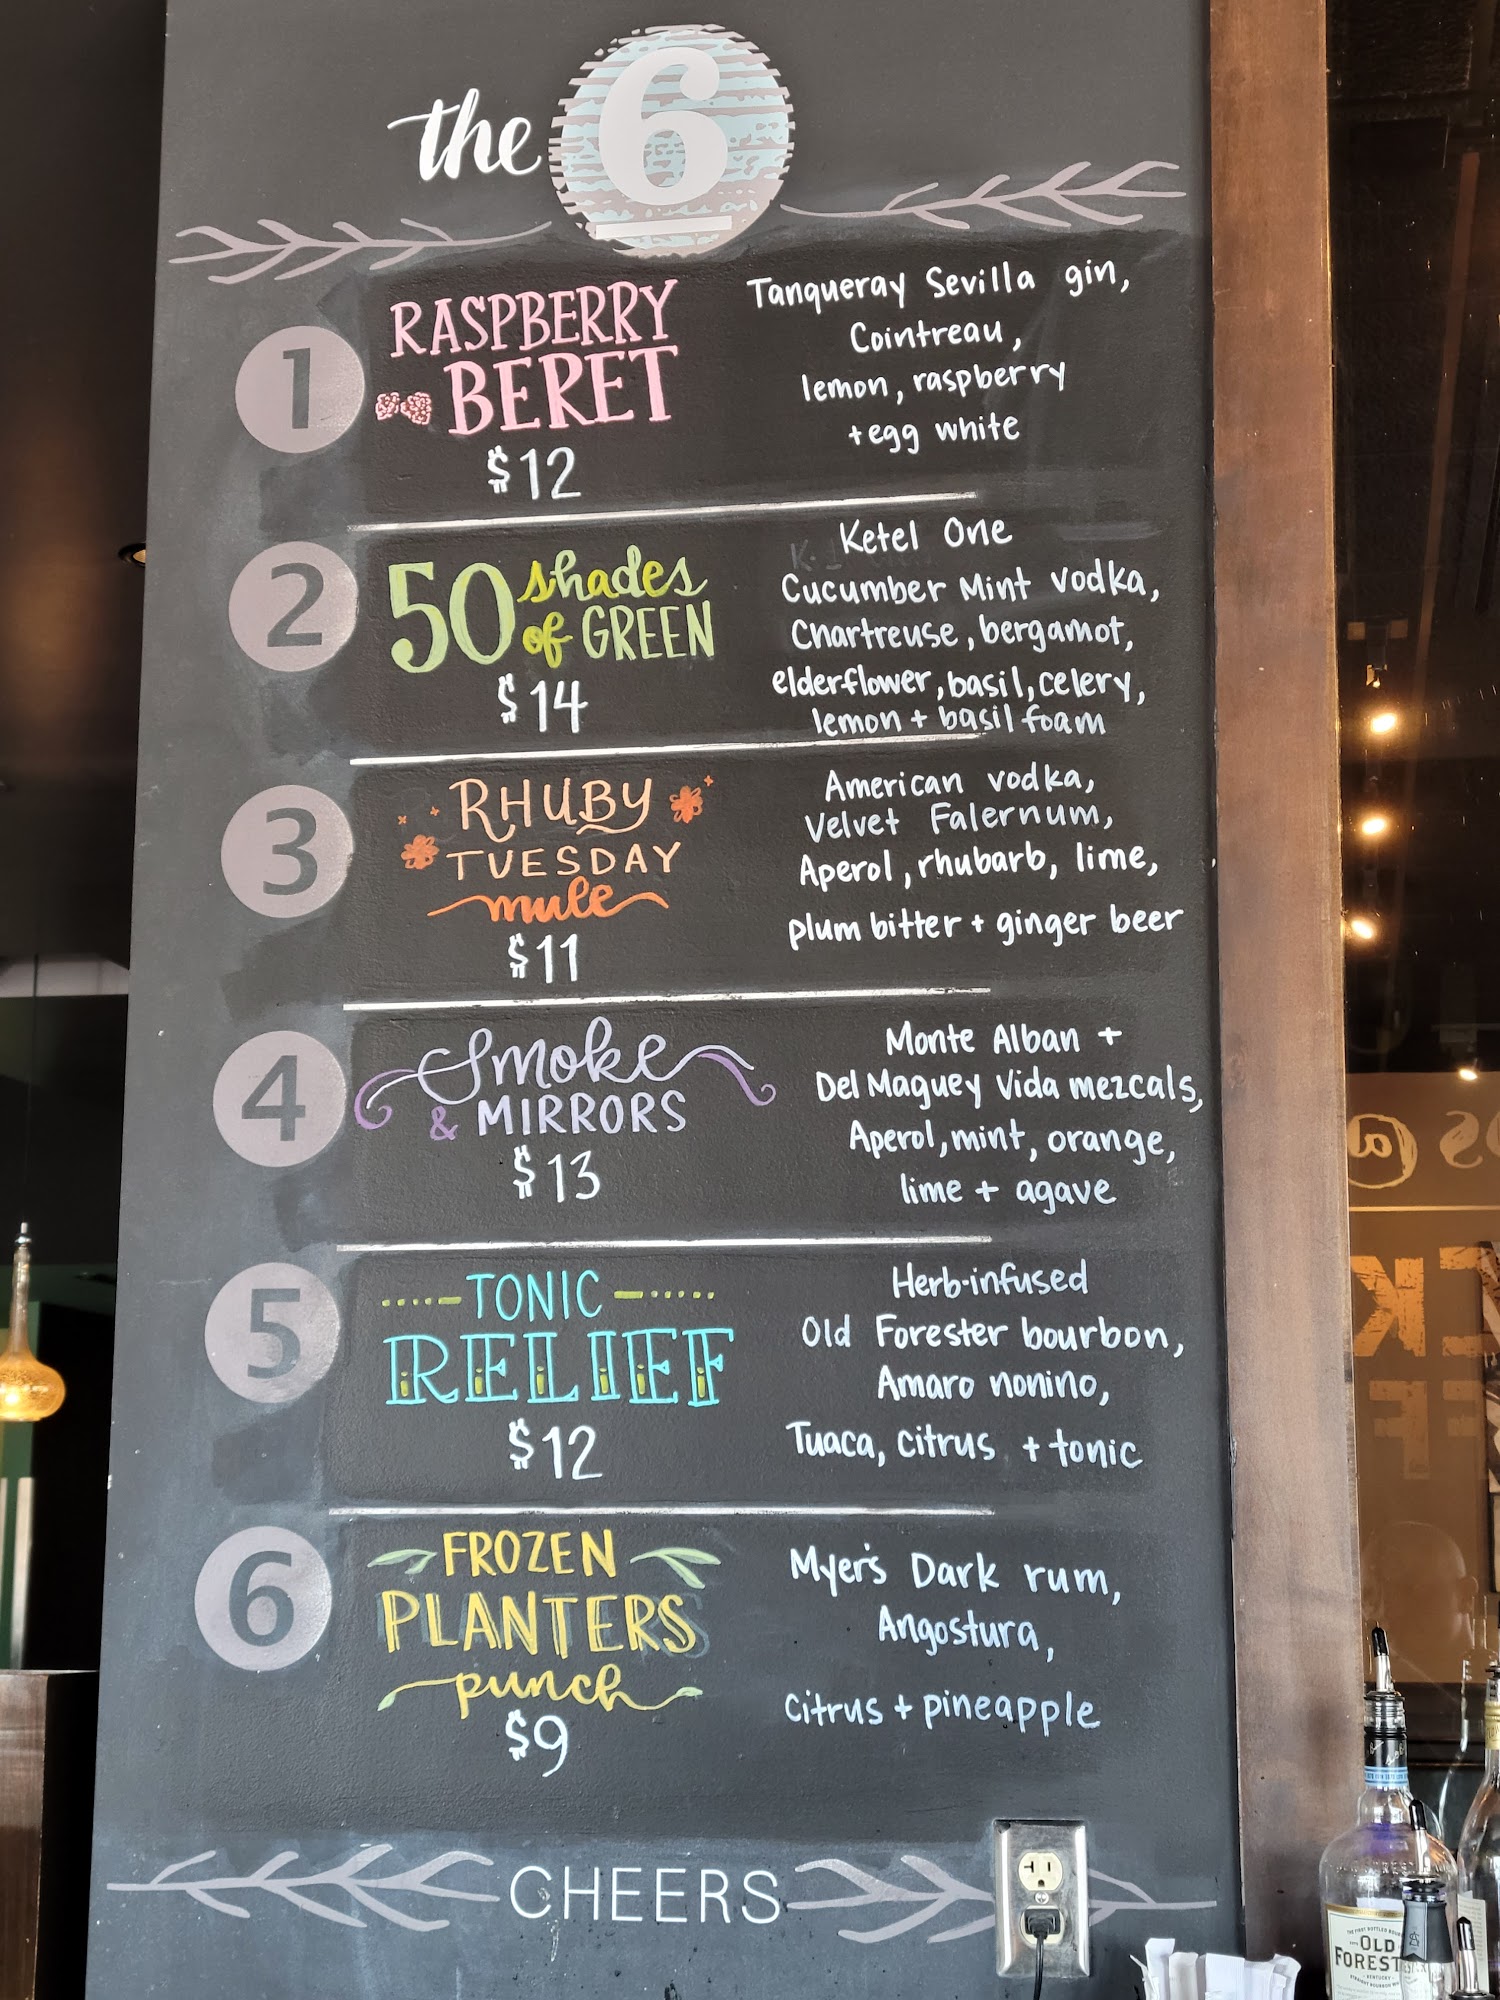 the 6
1
RASPBERRY
BERET
$12
Tanqueray Sevilla gin,
Cointreau,
lemon, raspberry
+ egg white
2
50 shades
of GREEN
$14
Ketel One
Cucumber Mint vodka,
Chartreuse, bergamot,
elderflower, basil, celery,
lemon + basil foam
3
RHUBY
TUESDAY
mule
$11
American vodka,
Velvet Falernum,
Aperol, rhubarb, lime,
plum bitter + ginger beer
4
Smoke
& MIRRORS
$13
Monte Alban +
Del Maguey Vida mezcals,
Aperol, mint, orange,
lime + agave
5
TONIC
RELIEF
$12
Herb-infused
Old Forester bourbon,
Amaro nonino,
Tuaca, citrus + tonic
6
FROZEN
PLANTERS
punch
$9
Myer's Dark rum,
Angostura,
citrus + pineapple
CHEERS
OLD